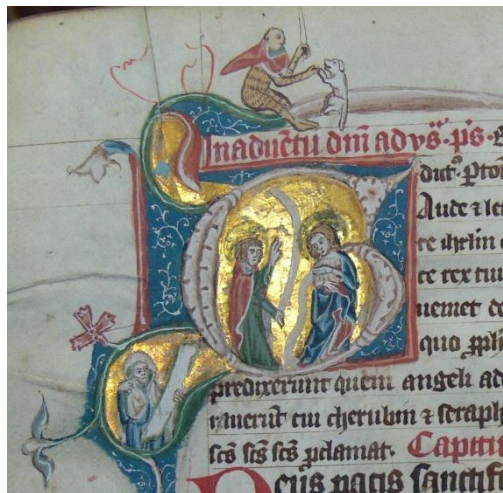 In aduētu dnī ad vs̄. ps̄. B
dict᷒. Ptol
Gaude ⁊ let
re ihrlm e
ce rex tuu
ueniet de
quo ꝓph
predixerunt quem angeli ad
rauerūt cui cherubin ⁊ seraph
scs̄ scs̄ scs̄ ꝓclamat. Capitu
Deus pacis sanctif